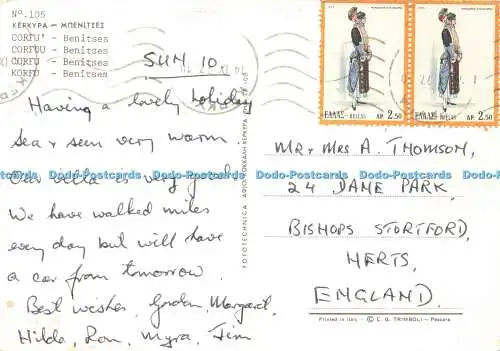 Nº. 105
ΚΕΡΚΥΡΑ - ΜΠΕΝΙΤΣΕΣ
CORFU' - Benitses
CORFOU - Benitses
CORFU - Benitses
KORFU - Benitses
SUN 10.
Having a lovely holiday
sea & sun very warm.
Our villa is very good.
We have walked miles
every day but will have
a car from tomorrow.
Best wishes, Gordon, Margaret,
Hilda, Ron, Myra, Jim
FOTOTECHNICA
ΕΛΛΑΣ-HELLAS ΔΡ. 2.50
ΕΛΛΑΣ-HELLAS ΔΡ. 2.50
Mr & Mrs A. THOMSON,
24 DANE PARK,
BISHOPS STORTFORD,
HERTS,
ENGLAND.
Printed in Italy - © C. G. TRIMBOLI - Pescara
Dodo-Postcards Dodo-Postcards Dodo-Postcards Dodo-Postcards Dodo-Postcards